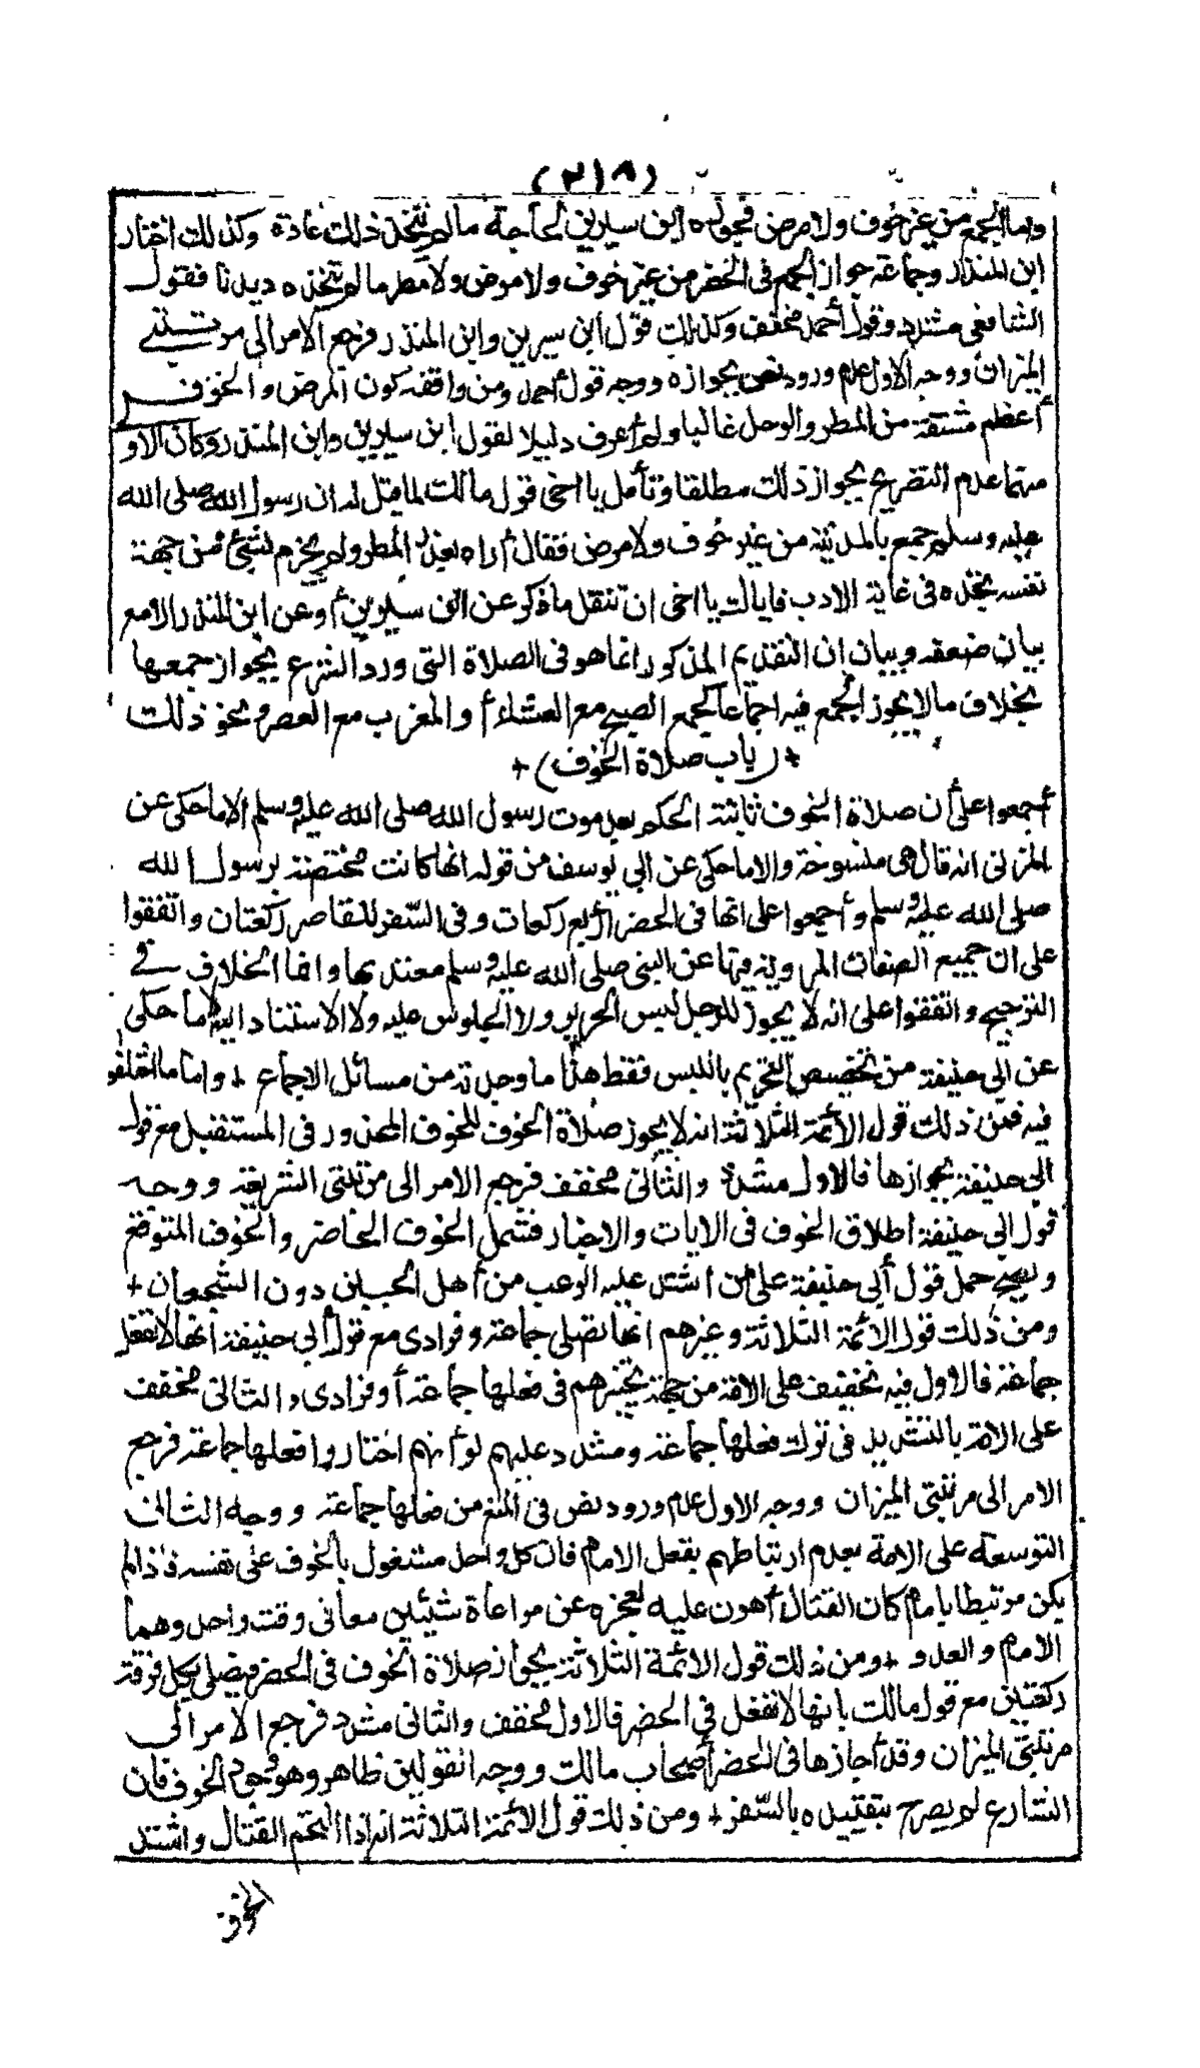 (٢١٨)
وأما الجمع من غير خوف ولا مرض فجوزه ابن سيرين لحاجة ما لم يتخذ ذلك عادة وكذلك اختار
ابن المنذر وجماعة جواز الجمع في الحضر من غير خوف ولا مرض ولا مطر ما لم يتخذه ديدنا فقول
الشافعي مشدد وقول أحمد مخفف وكذلك قول ابن سيرين وابن المنذر فرجع الامر الى مرتبتي
الميزان ووجه الاول عدم ورود نص بجوازه ووجه قول أحمد ومن وافقه كون المرض والخوف
أعظم مشقة من المطر والوحل غالبا ولم أعرف دليلا لقول ابن سيرين وابن المنذر وكان الاولى
منهما عدم التصريح بجواز ذلك مطلقا وتأمل يا اخي قول مالك لما قيل له ان رسول الله صلى الله
عليه وسلم جمع بالمدينة من غير خوف ولا مرض فقال أراه بعذر المطر ولم يجزم بشئ من جهة
نفسه تجده في غاية الادب فاياك يا اخي ان تنقل ما ذكر عن ابن سيرين أو عن ابن المنذر الا مع
بيان ضعفه وبيان ان التقديم المذكور انما هو في الصلاة التي ورد الشرع بجواز جمعها
بخلاف ما لا يجوز الجمع فيه اجماعا كجمع الصبح مع العشاء أو المغرب مع العصر ونحو ذلك
+ (باب صلاة الخوف) +
أجمعوا على أن صلاة الخوف ثابتة الحكم بعد موت رسول الله صلى الله عليه وسلم الا ما حكي عن
المزني انه قال هي منسوخة والا ما حكي عن ابي يوسف من قوله انها كانت مختصة برسول الله
صلى الله عليه وسلم وأجمعوا على انها في الحضر اربع ركعات وفي السفر للقاصر ركعتان واتفقوا
على ان جميع الصفات المروية فيها عن النبي صلى الله عليه وسلم معتد بها وانما الخلاف في
الترجيح واتفقوا على انه لا يجوز للرجل لبس الحرير ولا الجلوس عليه ولا الاستناد اليه الا ما حكي
عن ابي حنيفة من تخصيص التحريم باللبس فقط هذا ما وجدته من مسائل الاجماع + واما ما اختلفوا
فيه فمن ذلك قول الأئمة الثلاثة انه لا يجوز صلاة الخوف للخوف المحذور في المستقبل مع قول
ابي حنيفة بجوازها فالاول مشدد والثاني مخفف فرجع الامر الى مرتبتي الشريعة ووجه
قول ابي حنيفة اطلاق الخوف في الايات والاخبار فتشمل الخوف الحاضر والخوف المتوقع
ويصح حمل قول أبي حنيفة على من اشتد عليه الرعب من أهل الجبن دون الشجعان +
ومن ذلك قول الائمة الثلاثة وغيرهم انها تصلى جماعة وفرادى مع قول أبي حنيفة انها لا تفعل
جماعة فالاول فيه تخفيف على الامة من جهة تخييرهم في فعلها جماعة أو فرادى والثاني مخفف
على الامة بالتشديد في ترك فعلها جماعة ومشدد عليهم لو أنهم اختاروا فعلها جماعة فرجع
الامر الى مرتبتي الميزان ووجه الاول عدم ورود نص في المنع من فعلها جماعة ووجه الثاني
التوسعة على الامة بعدم ارتباطهم بفعل الامام فان كل واحد مشغول بالخوف على نفسه فاذا لم
يكن مرتبطا بامام كان القتال أهون عليه لعجزه عن مراعاة شيئين معا في وقت واحد وهما
الامام والعدو + ومن ذلك قول الائمة الثلاثة بجواز صلاة الخوف في الحضر فيصلي بكل فرقة
ركعتين مع قول مالك بانها لا تفعل في الحضر فالاول مخفف والثاني مشدد فرجع الامر الى
مرتبتي الميزان وقد أجازها في الحضر أصحاب مالك ووجه القولين ظاهر وهو عموم الخوف فان
الشارع لم يصرح بتقييده بالسفر + ومن ذلك قول الائمة الثلاثة انه اذا التحم القتال واشتد
الخوف